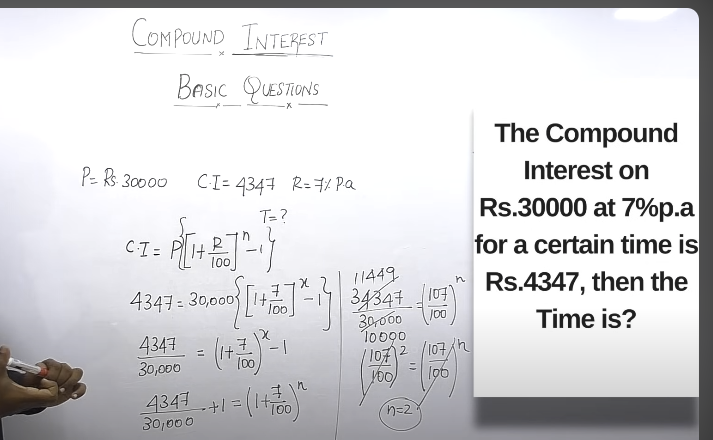 COMPOUND INTEREST
BASIC QUESTIONS
P= Rs. 30000 C.I= 4347 R= 7% Pa
T=?
C.I = P{[1+R/100]^n -1}
4347 = 30,000{[1+7/100]^x -1}
4347/30,000 = (1+7/100)^x -1
4347/30,000 +1 = (1+7/100)^n
11449
34347/30,000 = (107/100)^n
10000
(107/100)^2 = (107/100)^n
n=2
The Compound
Interest on
Rs.30000 at 7%p.a
for a certain time is
Rs.4347, then the
Time is?